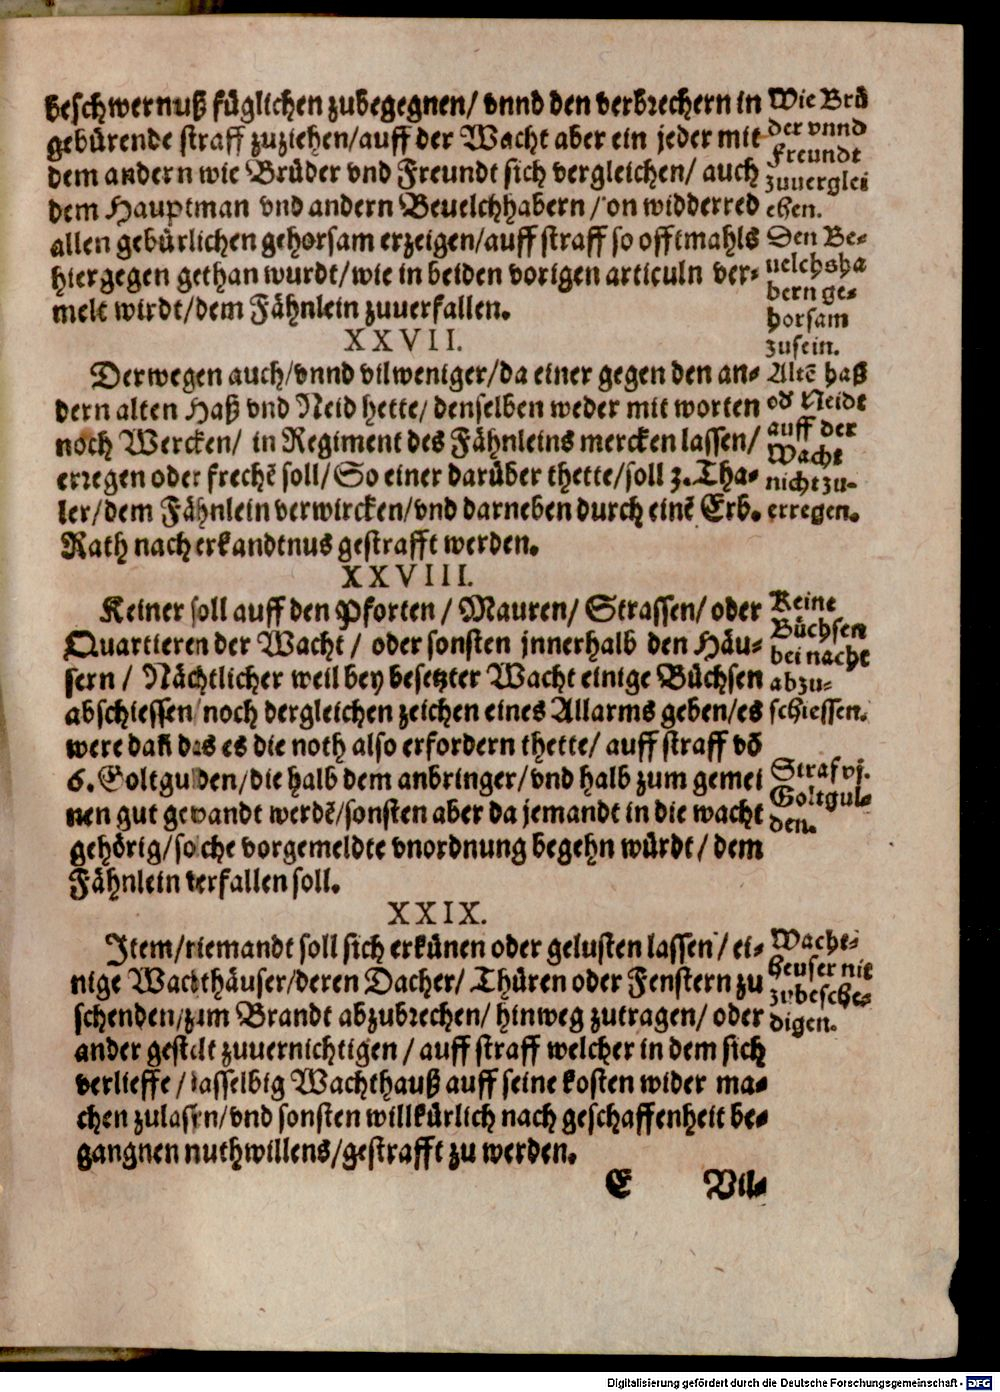 beschwernuß füglichen zubegegnen/ vnnd den verbrechern in
gebürende straff zuziehen/auff der Wacht aber ein jeder mit
dem andern wie Brüder vnd Freundt sich vergleichen/ auch
dem Hauptman vnd andern Beuelchhabern/ on widderred
allen gebürlichen gehorsam erzeigen/auff straff so offtmahls
hiergegen gethan wurdt/wie in beiden vorigen articuln ver-
melt wirdt/dem Fähnlein zuuerfallen.
Wie Brü
der vnnd
Freundt
zuuerglei
chen.
Den Be-
uelchsha
bern ge-
horsam
zusein.
XXVII.
Derwegen auch/vnnd vilweniger/da einer gegen den an-
dern alten Haß vnd Neid hette/ denselben weder mit worten
noch Wercken/ in Regiment des Fähnleins mercken lassen/
erregen oder frechē soll/ So einer darüber thette/soll 3. Tha-
ler/dem Fähnlein verwircken/vnd darneben durch einē Erb.
Rath nach erkandtnus gestrafft werden.
Altē haß
od Neidt
auff der
Wacht
nicht zu-
erregen.
XXVIII.
Keiner soll auff den Pforten / Mauren/ Strassen/ oder
Quartieren der Wacht / oder sonsten jnnerhalb den Häu-
sern / Nächtlicher weil bey besetzter Wacht einige Büchsen
abschiessen/noch dergleichen zeichen eines Allarms geben/es
were dañ das es die noth also erfordern thette/ auff straff vō
6. Goltgulden/die halb dem anbringer/vnd halb zum gemei
nen gut gewandt werdē/sonsten aber da jemandt in die wacht
gehörig/solche vorgemeldte vnordnung begehn würdt/ dem
Fähnlein verfallen soll.
Keine
Büchsen
bei nacht
abzu-
schiessen.
Straf vj.
Goltgul-
den.
XXIX.
Item/niemandt soll sich erkünen oder gelusten lassen/ ei-
nige Wachthäuser/deren Dacher/ Thüren oder Fenstern zu
schenden/zum Brandt abzubrechen/ hinweg zutragen/ oder
ander gestalt zuuernichtigen / auff straff welcher in dem sich
verlieffe / dasselbig Wachthauß auff seine kosten wider ma-
chen zulassen/vnd sonsten willkürlich nach geschaffenheit be-
gangnen muthwillens/gestrafft zu werden.
Wacht-
heuser nit
zubesche-
digen.
E Vil-
Digitalisierung gefördert durch die Deutsche Forschungsgemeinschaft - DFG